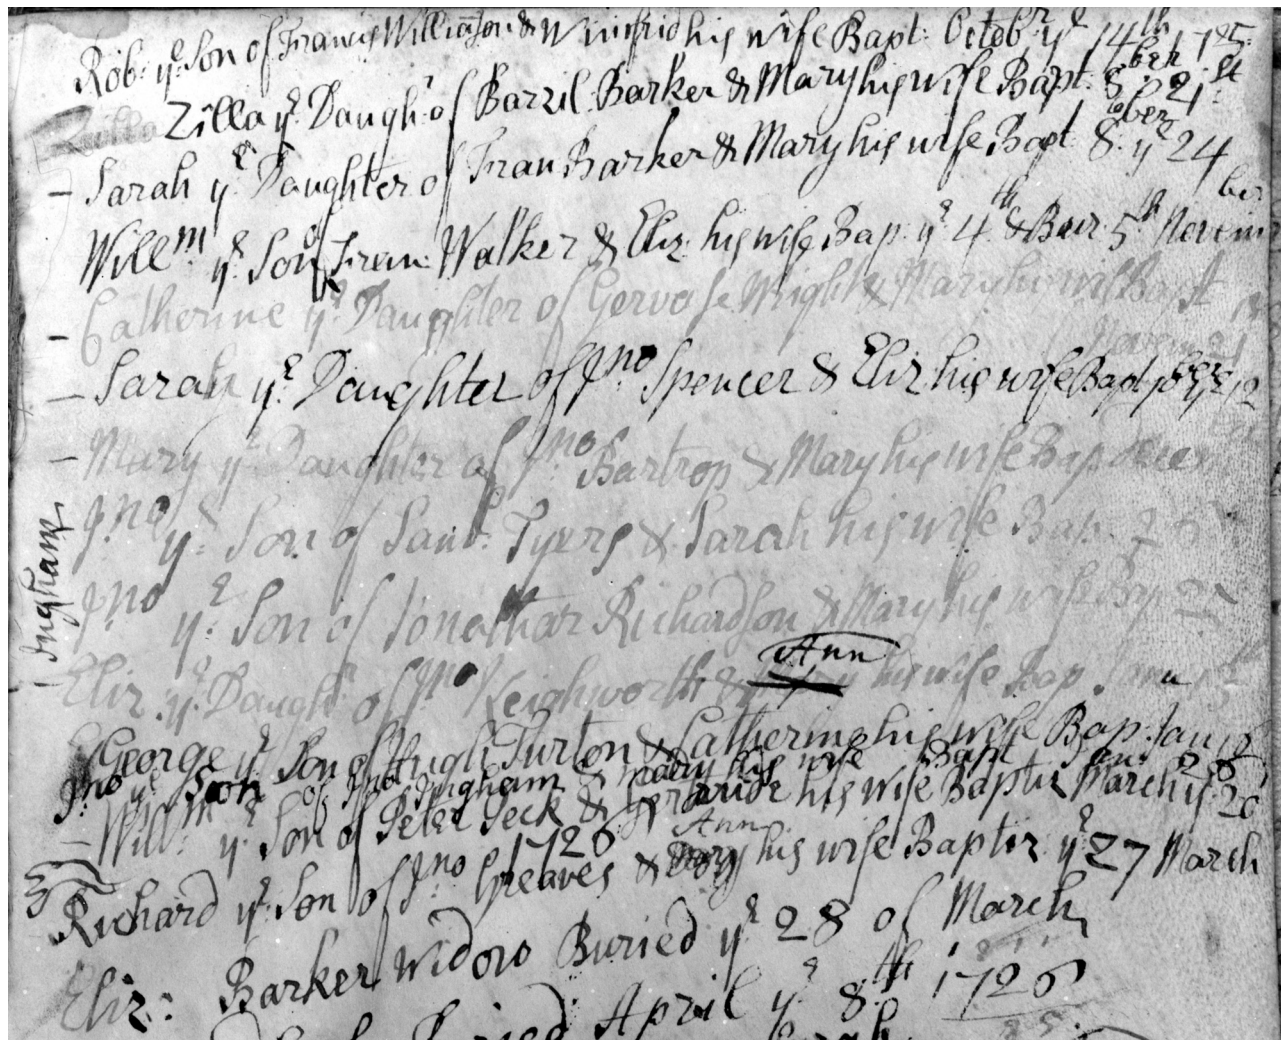 Rob: ye Son of Francis Williamson & Winifrid his wife Bapt: Octobr ye 14th 1725
Zilla ye Daughr of Barzil: Barker & Mary his wife Bapt. 8ber 21st
Sarah ye Daughter of Fran Barker & Mary his wife Bapt 8ber ye 24
Willm ye Son of Fran: Walker & Eliz: his wife Bap: ye 4th & Bur 5th Novembr
Catherine ye Daughter of Gervase Wright & Mary his wife Bapt
Novem 21
Sarah ye Daughter of Jno Spencer & Eliz his wife Bapt 10ber ye 12
Mary ye Daughter of Jno Bartrop & Mary his wife Bap
Jno ye Son of Sam: Tyers & Sarah his wife Bap: 26
Jno ye Son of Jonathan Richardson & Mary his wife Bap 27
Ingham
Eliz: ye Daught of Jno Keighworth & Ann his wife Bap Janu
George ye Son of Hugh Turton & Catherine his wife Bap: Jan 12
Jno ye Son of Jno Ingham & Mary his wife Bapt Jan: 26
Willm ye Son of Peter Peck & his wife Baptiz March ye 20
1726
Richard ye Son of Jno Greaves & Ann his wife Baptiz ye 27 March
Eliz: Barker Widow Buried ye 28 of March
April ye 8th 1726